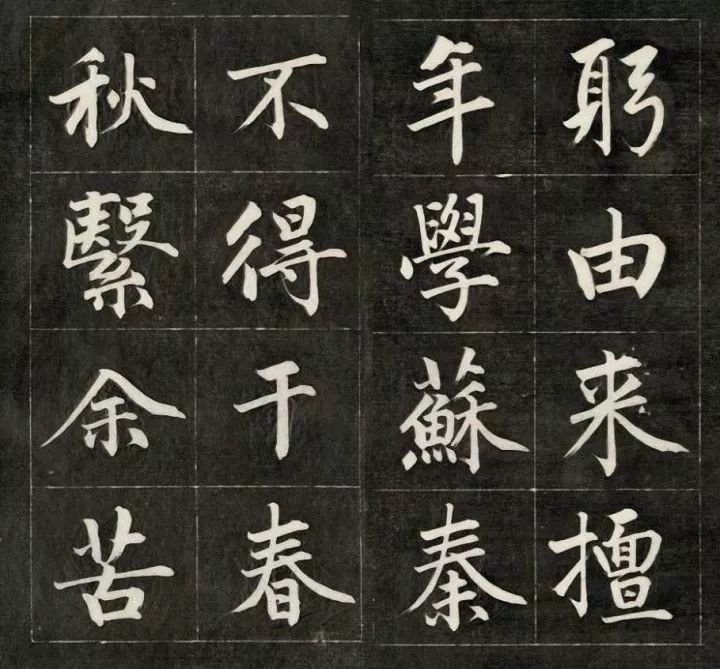 躬由来擅
年學蘇秦
不得干春
秋繄余苦